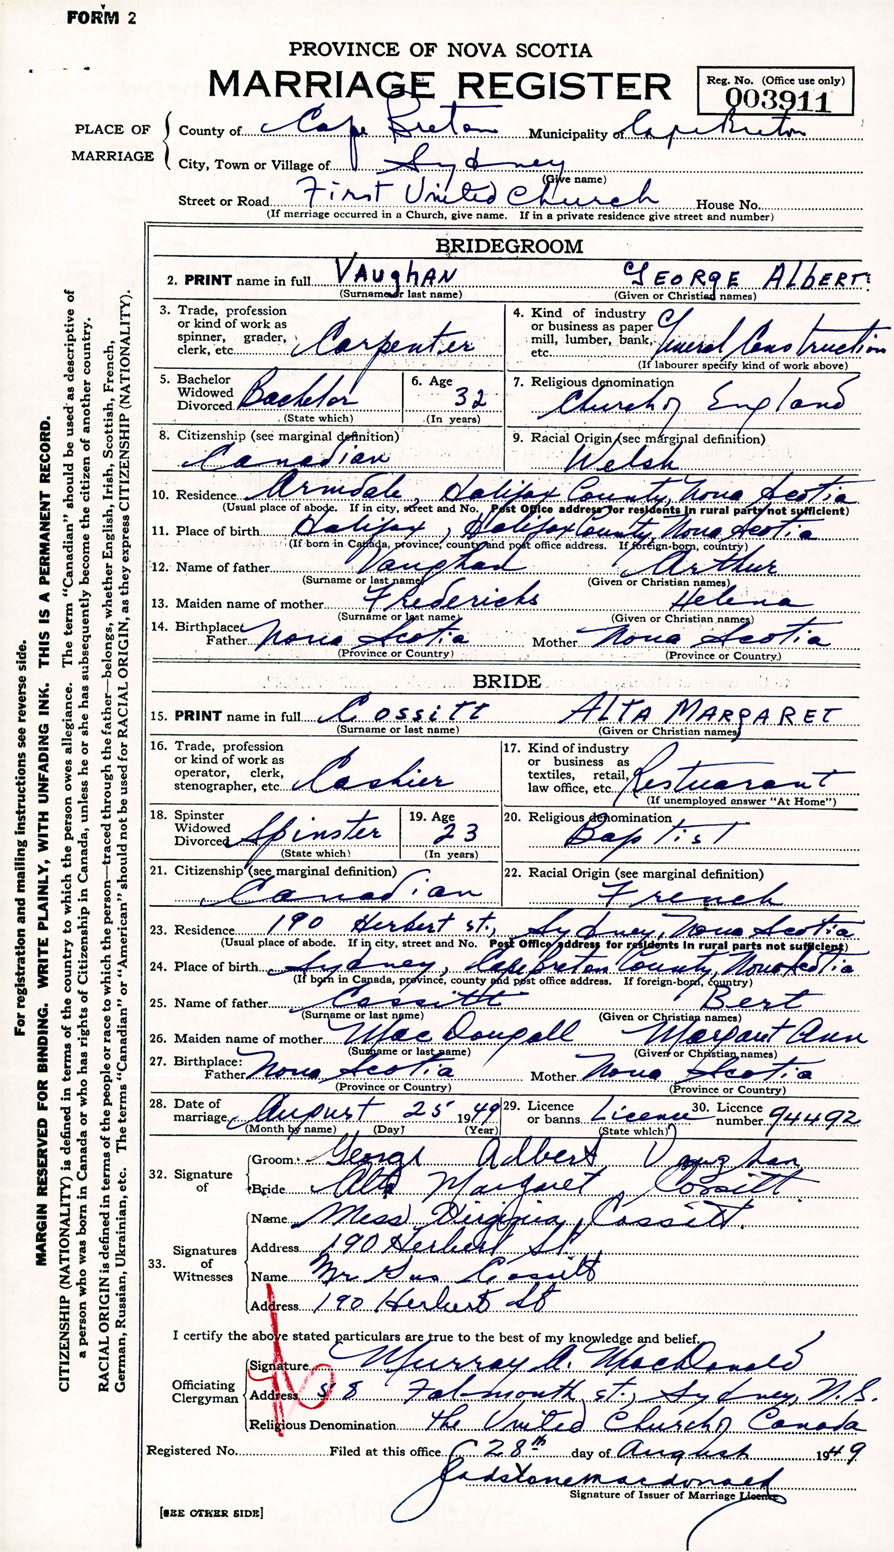 FORM 2
PROVINCE OF NOVA SCOTIA
MARRIAGE REGISTER
Reg. No. (Office use only)
003911
PLACE OF MARRIAGE
County of Cape Breton Municipality of Cape Breton
City, Town or Village of Sydney
(Give name)
Street or Road First United Church House No.
(If marriage occurred in a Church, give name. If in a private residence give street and number)
BRIDEGROOM
2. PRINT name in full VAUghAN GEORGE ALBERT
(Surname or last name) (Given or Christian names)
3. Trade, profession or kind of work as spinner, grader, clerk, etc. Carpenter
4. Kind of industry or business as paper mill, lumber, bank, etc. General Construction
(If labourer specify kind of work above)
5. Bachelor Widowed Divorced Bachelor
(State which)
6. Age 32
(In years)
7. Religious denomination
Church of England
8. Citizenship (see marginal definition)
Canadian
9. Racial Origin (see marginal definition)
Welsh
10. Residence Armdale, Halifax County, Nova Scotia
(Usual place of abode. If in city, street and No. Post Office address for residents in rural parts not sufficient)
11. Place of birth Halifax, Halifax County, Nova Scotia
(If born in Canada, province, county and post office address. If foreign-born, country)
12. Name of father Vaughan Arthur
(Surname or last name) (Given or Christian names)
13. Maiden name of mother Fredericks Helena
(Surname or last name) (Given or Christian names)
14. Birthplace: Father Nova Scotia Mother Nova Scotia
(Province or Country) (Province or Country)
BRIDE
15. PRINT name in full COSSITT ALTA MARGARET
(Surname or last name) (Given or Christian names)
16. Trade, profession or kind of work as operator, clerk, stenographer, etc. Cashier
17. Kind of industry or business as textiles, retail, law office, etc. Restuarant
(If unemployed answer "At Home")
18. Spinster Widowed Divorced Spinster
(State which)
19. Age 23
(In years)
20. Religious denomination
Baptist
21. Citizenship (see marginal definition)
Canadian
22. Racial Origin (see marginal definition)
French
23. Residence 190 Herbert st., Sydney, Nova Scotia
(Usual place of abode. If in city, street and No. Post Office address for residents in rural parts not sufficient)
24. Place of birth Sydney, Cape Breton County, Nova Scotia
(If born in Canada, province, county and post office address. If foreign-born, country)
25. Name of father Cossitt Bert
(Surname or last name) (Given or Christian names)
26. Maiden name of mother MacDougall Margaret Ann
(Surname or last name) (Given or Christian names)
27. Birthplace: Father Nova Scotia Mother Nova Scotia
(Province or Country) (Province or Country)
28. Date of marriage August 25 1949
(Month by name) (Day) (Year)
29. Licence or banns Licence
(State which)
30. Licence number 94492
32. Signature of
Groom George Adbert Vaughan
Bride Alta Margaret Cossitt
33. Signatures of Witnesses
Name Miss Virginia Cossitt.
Address 190 Herbert St
Name Mr. Gus Cossitt
Address 190 Herbert St
I certify the above stated particulars are true to the best of my knowledge and belief.
Officiating Clergyman
Signature Murray A. MacDonald
Address 58 Falmouth st., Sydney, N.S.
Religious Denomination The United Church of Canada
Registered No. Filed at this office 28th day of August 1949
Gladstone Macdonald
Signature of Issuer of Marriage Licence
[SEE OTHER SIDE]
For registration and mailing instructions see reverse side.
MARGIN RESERVED FOR BINDING. WRITE PLAINLY, WITH UNFADING INK. THIS IS A PERMANENT RECORD.
CITIZENSHIP (NATIONALITY) is defined in terms of the country to which the person owes allegiance. The term "Canadian" should be used as descriptive of
a person who was born in Canada or who has rights of Citizenship in Canada, unless he or she has subsequently become the citizen of another country.
RACIAL ORIGIN is defined in terms of the people or race to which the person—traced through the father—belongs, whether English, Irish, Scottish, French,
German, Russian, Ukrainian, etc. The terms "Canadian" or "American" should not be used for RACIAL ORIGIN, as they express CITIZENSHIP (NATIONALITY).